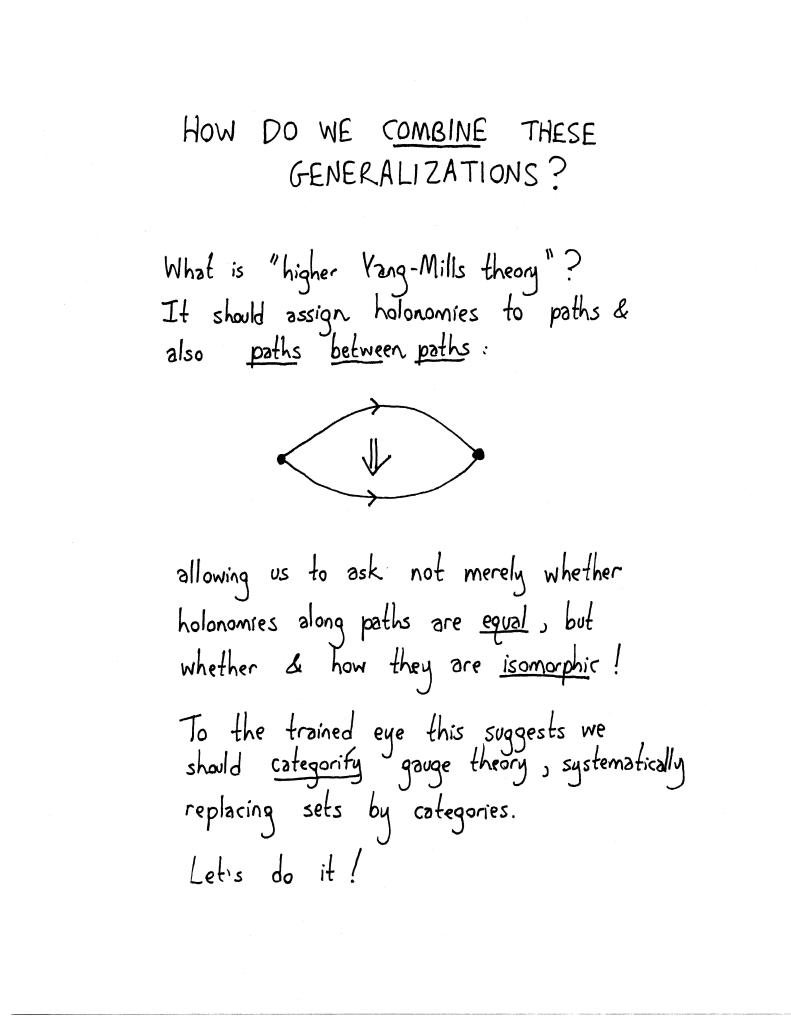 HOW DO WE COMBINE THESE
GENERALIZATIONS?
What is "higher Yang-Mills theory"?
It should assign holonomies to paths &
also paths between paths:
allowing us to ask not merely whether
holonomies along paths are equal, but
whether & how they are isomorphic!
To the trained eye this suggests we
should categorify gauge theory, systematically
replacing sets by categories.
Let's do it!